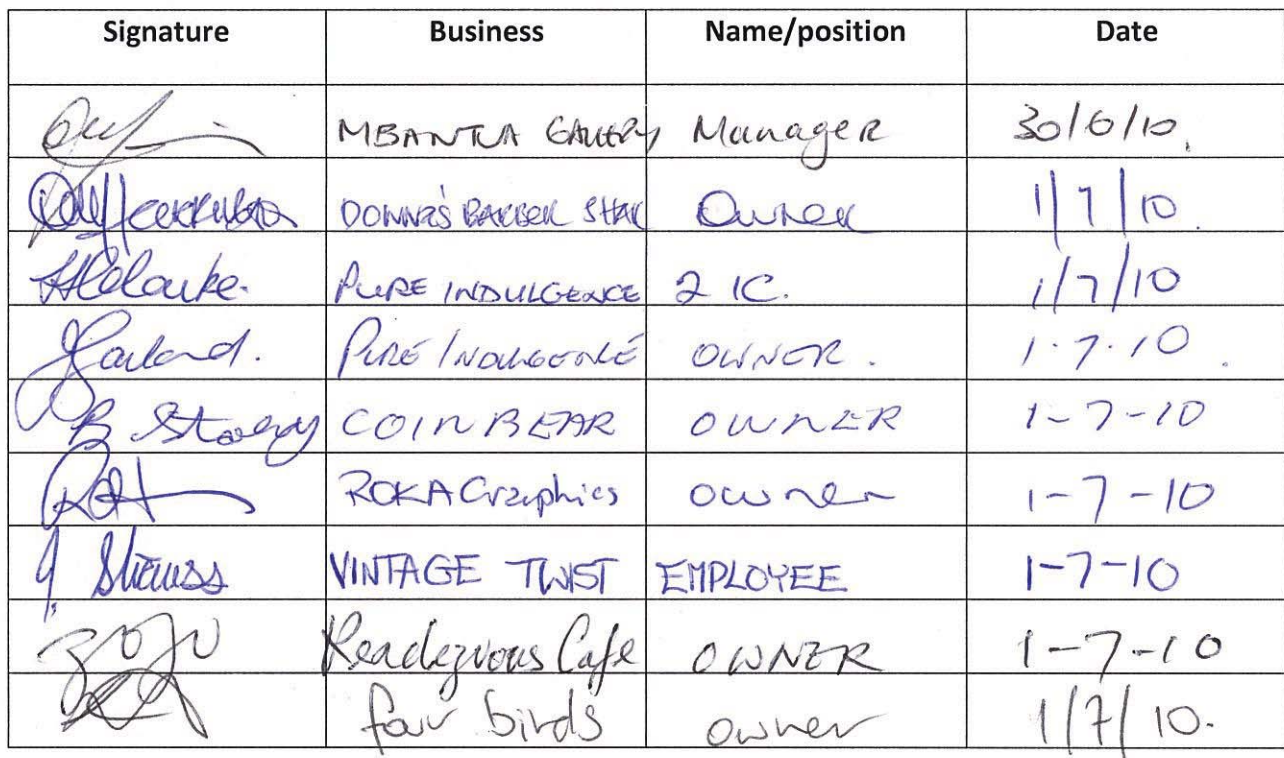 Signature Business Name/position Date
MBANTUA GALLERY Manager 30/6/10.
DONNA'S BARBER SHAK Owner 1/7/10
PURE INDULGENCE 2 IC. 1/7/10
PURE INDULGENCE OWNER. 1.7.10.
B COIN BEAR OWNER 1-7-10
ROKA Graphics owner 1-7-10
J VINTAGE TWIST EMPLOYEE 1-7-10
Rendezvous Cafe OWNER 1-7-10
four birds owner 1/7/10.